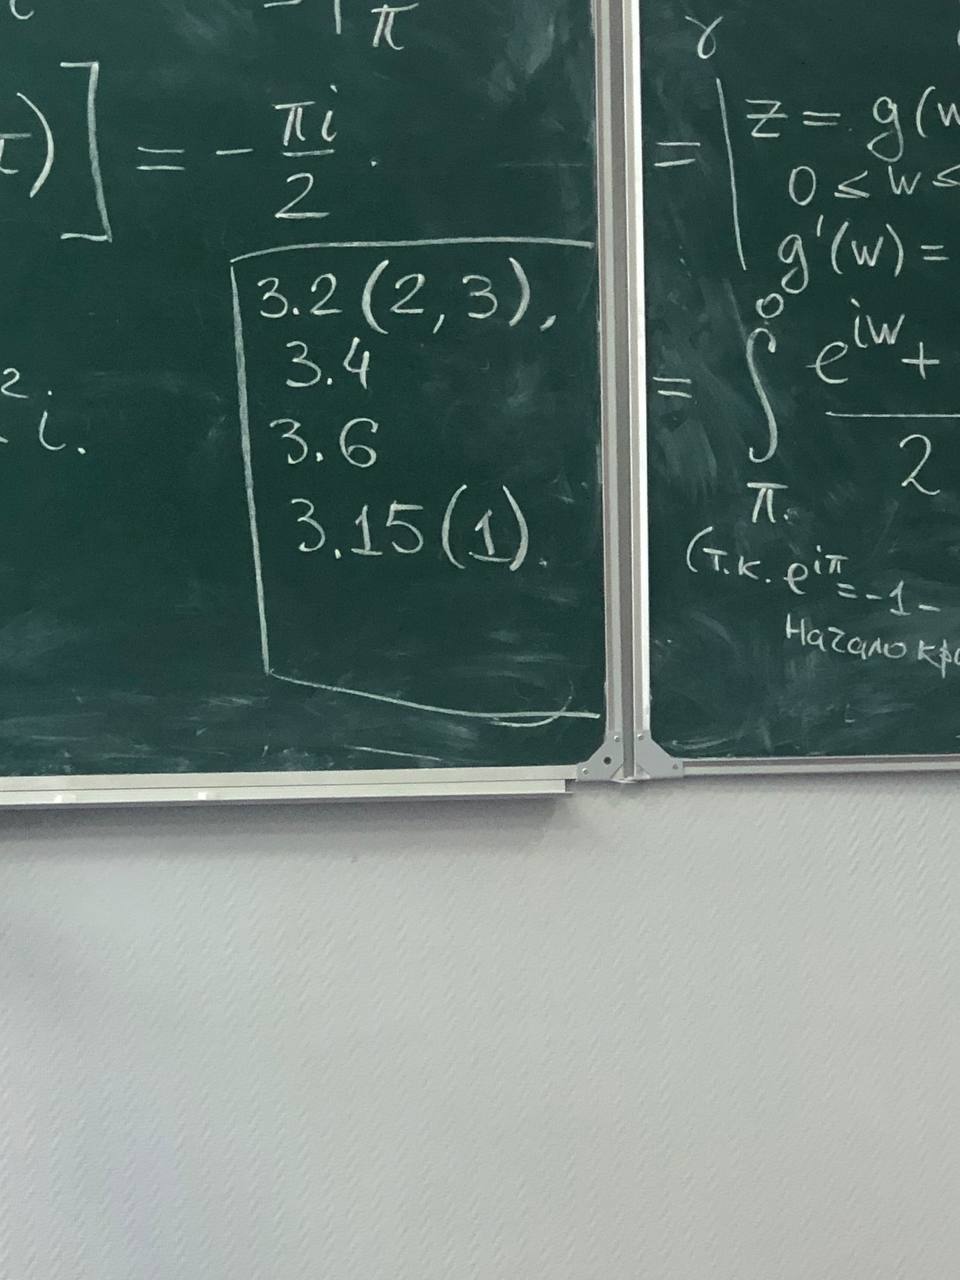 π
] = - πi/2 .
² i.
3.2 (2, 3),
3.4
3.6
3.15 (1).
γ
= | z = g(w
0 ≤ w ≤
g'(w) =
= ∫ 0 π e^{iw} +
2
(т.к. e^{iπ} = -1 -
Начало кр